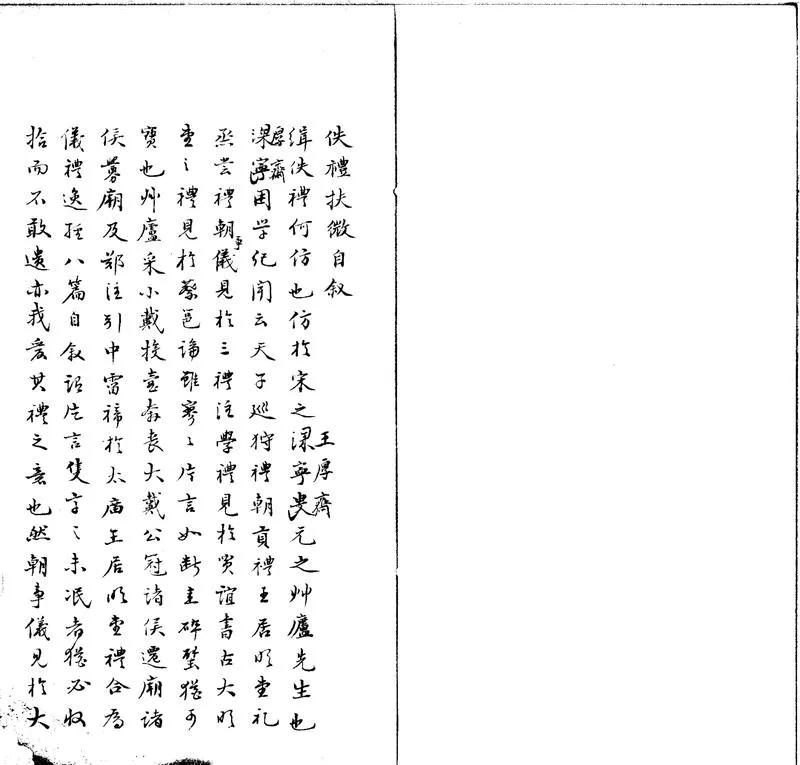 佚禮扶微自叙
緝佚禮何仿也仿於宋之深寧叟元之艸廬先生也
王厚齋
深寧困学纪聞云天子巡狩禮朝貢禮王居明堂礼
厚齋
烝嘗禮朝事儀見於三禮注學禮見於賈誼書古大明
堂之禮見於蔡邕論雖寥〻片言如斷圭碎璧猶可
寶也艸廬采小戴投壺奔喪大戴公冠诸侯遷廟诸
侯釁廟及鄭注引中霤禘於太庙王居明堂禮合为
儀禮逸經八篇自叙謂片言隻字之未泯者猶必收
拾而不敢遺亦我爱其禮之意也然朝事儀見於大